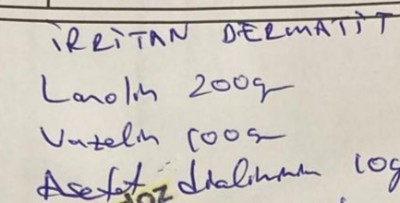 İRRİTAN DERMATİT
Lanolin 200g
Vazelin 100g
Asetat dialüminum 10g
OZ